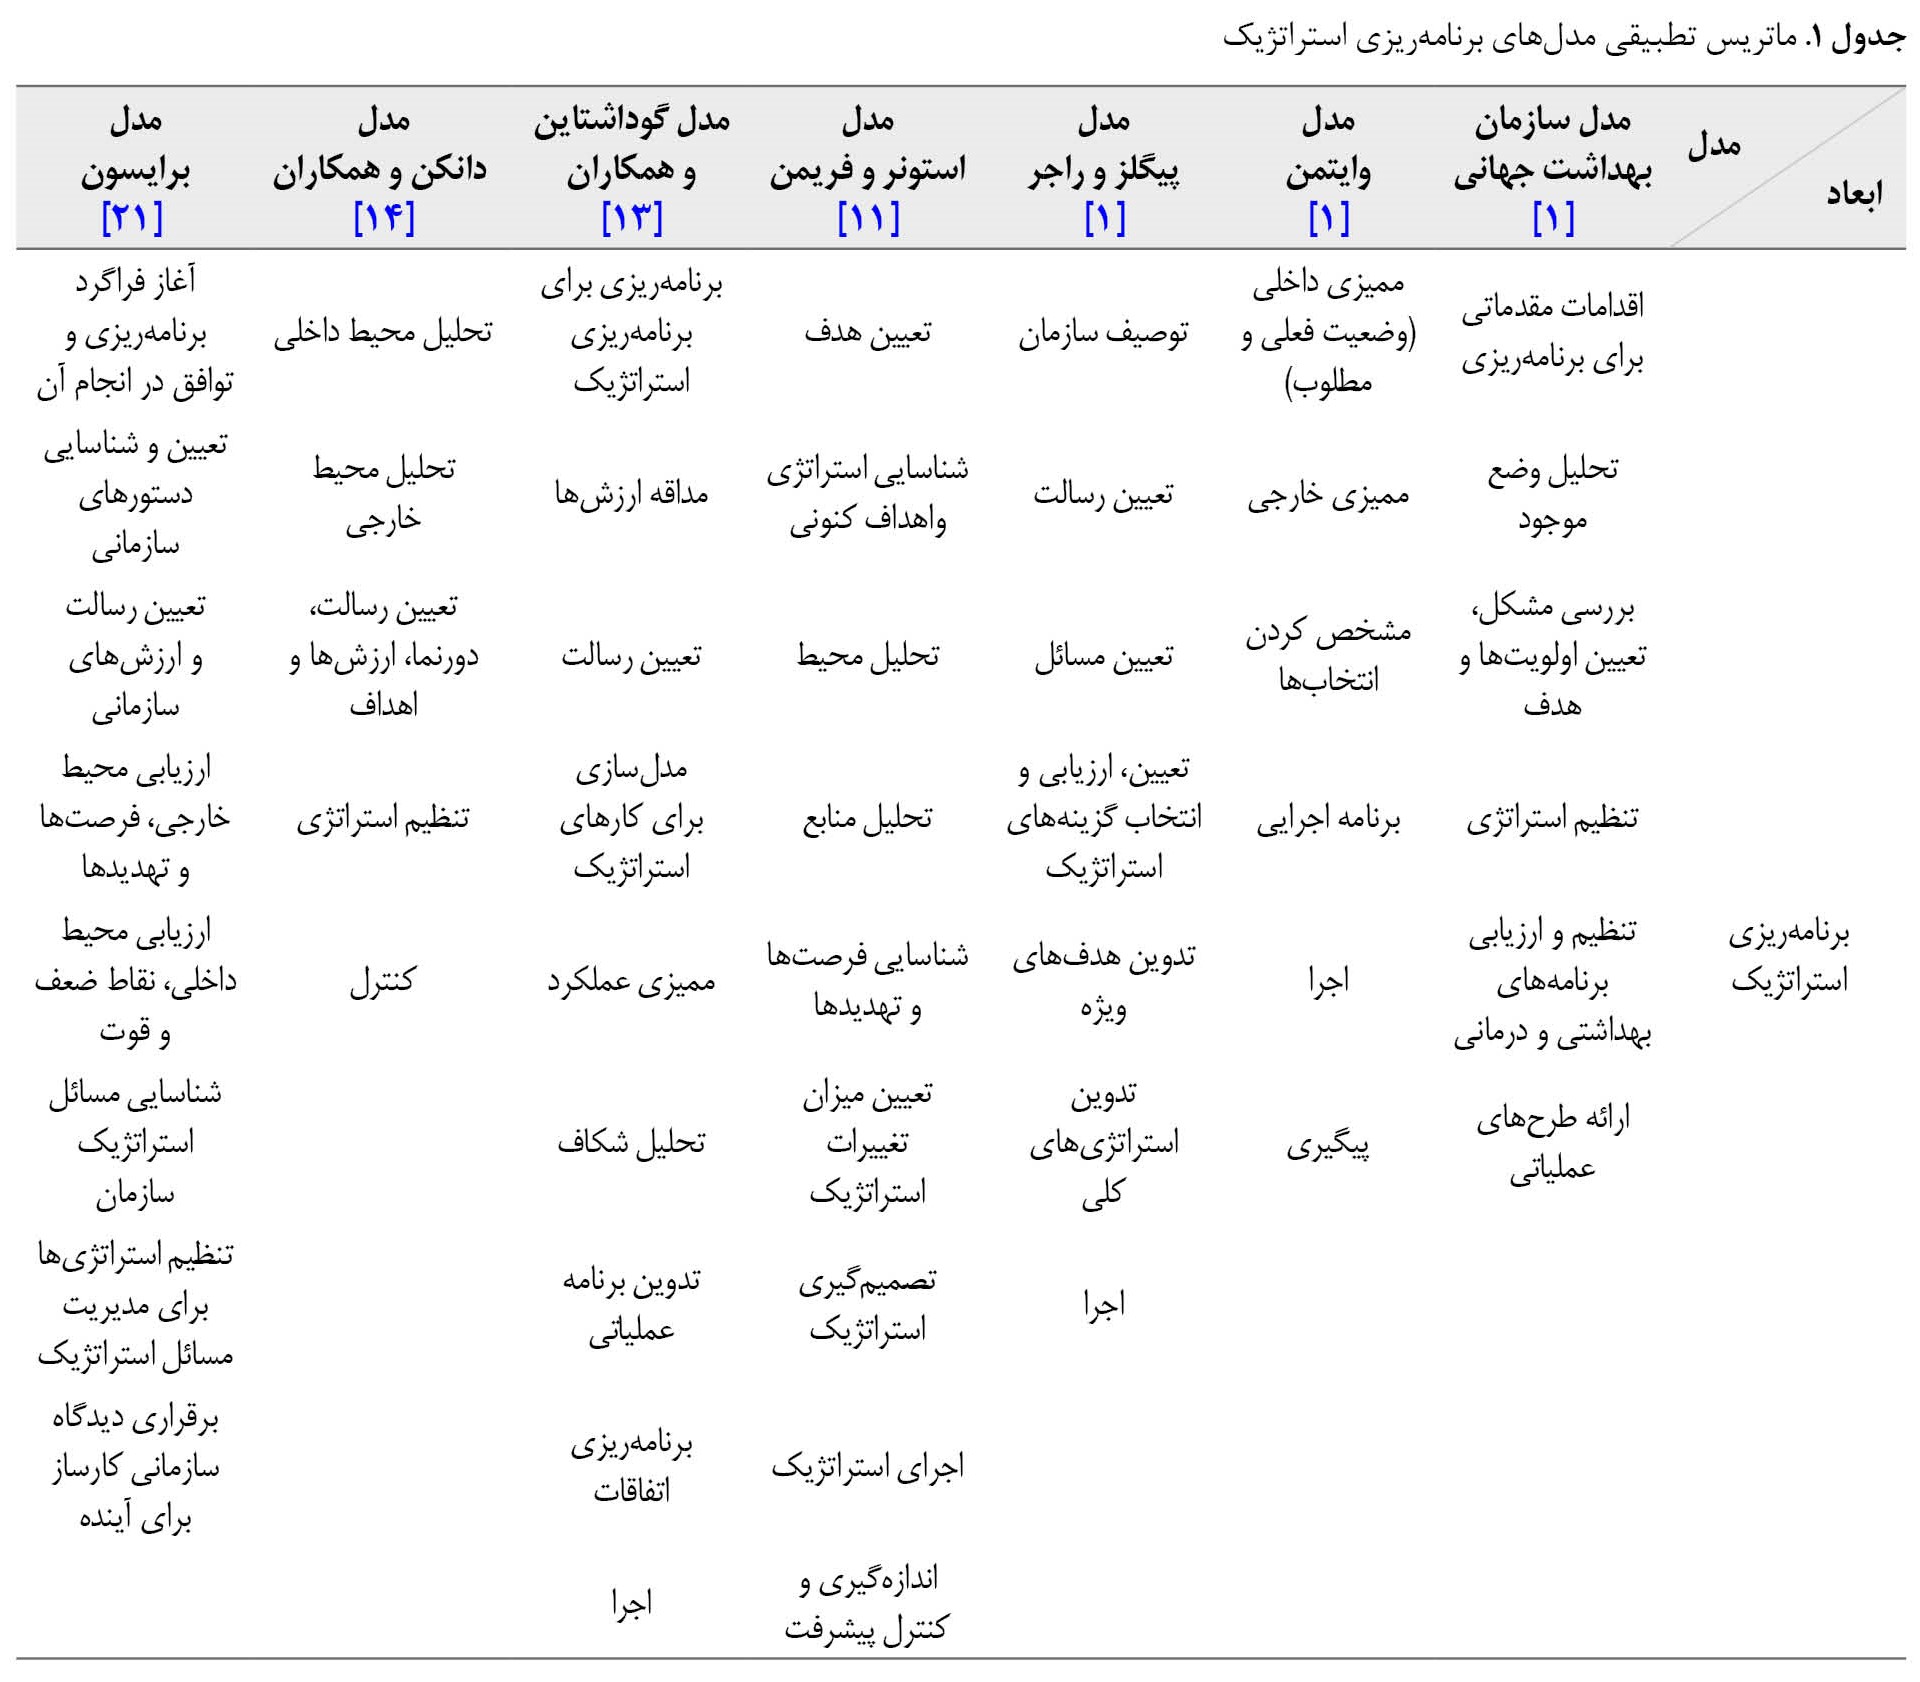 جدول ۱. ماتریس تطبیقی مدل‌های برنامه‌ریزی استراتژیک
مدل
ابعاد
مدل سازمان
بهداشت جهانی
[۱]
مدل
وایتمن
[۱]
مدل
پیگلز و راجر
[۱]
مدل
استونر و فریمن
[۱۱]
مدل گوداشتاین
و همکاران
[۱۳]
مدل
دانکن و همکاران
[۱۴]
مدل
برایسون
[۲۱]
برنامه‌ریزی
استراتژیک
اقدامات مقدماتی
برای برنامه‌ریزی
ممیزی داخلی
(وضعیت فعلی و
مطلوب)
توصیف سازمان
تعیین هدف
برنامه‌ریزی برای
برنامه‌ریزی
استراتژیک
تحلیل محیط داخلی
آغاز فراگرد
برنامه‌ریزی و
توافق در انجام آن
تحلیل وضع
موجود
ممیزی خارجی
تعیین رسالت
شناسایی استراتژی
واهداف کنونی
مداقه ارزش‌ها
تحلیل محیط
خارجی
تعیین و شناسایی
دستورهای
سازمانی
بررسی مشکل،
تعیین اولویت‌ها و
هدف
مشخص کردن
انتخاب‌ها
تعیین مسائل
تحلیل محیط
تعیین رسالت
تعیین رسالت،
دورنما، ارزش‌ها و
اهداف
تعیین رسالت
و ارزش‌های
سازمانی
تنظیم استراتژی
برنامه اجرایی
تعیین، ارزیابی و
انتخاب گزینه‌های
استراتژیک
تحلیل منابع
مدل‌سازی
برای کارهای
استراتژیک
تنظیم استراتژی
ارزیابی محیط
خارجی، فرصت‌ها
و تهدیدها
تنظیم و ارزیابی
برنامه‌های
بهداشتی و درمانی
اجرا
تدوین هدف‌های
ویژه
شناسایی فرصت‌ها
و تهدیدها
ممیزی عملکرد
کنترل
ارزیابی محیط
داخلی، نقاط ضعف
و قوت
ارائه طرح‌های
عملیاتی
پیگیری
تدوین
استراتژی‌های
کلی
تعیین میزان
تغییرات
استراتژیک
تحلیل شکاف
شناسایی مسائل
استراتژیک
سازمان
اجرا
تصمیم‌گیری
استراتژیک
تدوین برنامه
عملیاتی
تنظیم استراتژی‌ها
برای مدیریت
مسائل استراتژیک
اجرای استراتژیک
برنامه‌ریزی
اتفاقات
برقراری دیدگاه
سازمانی کارساز
برای آینده
اندازه‌گیری و
کنترل پیشرفت
اجرا